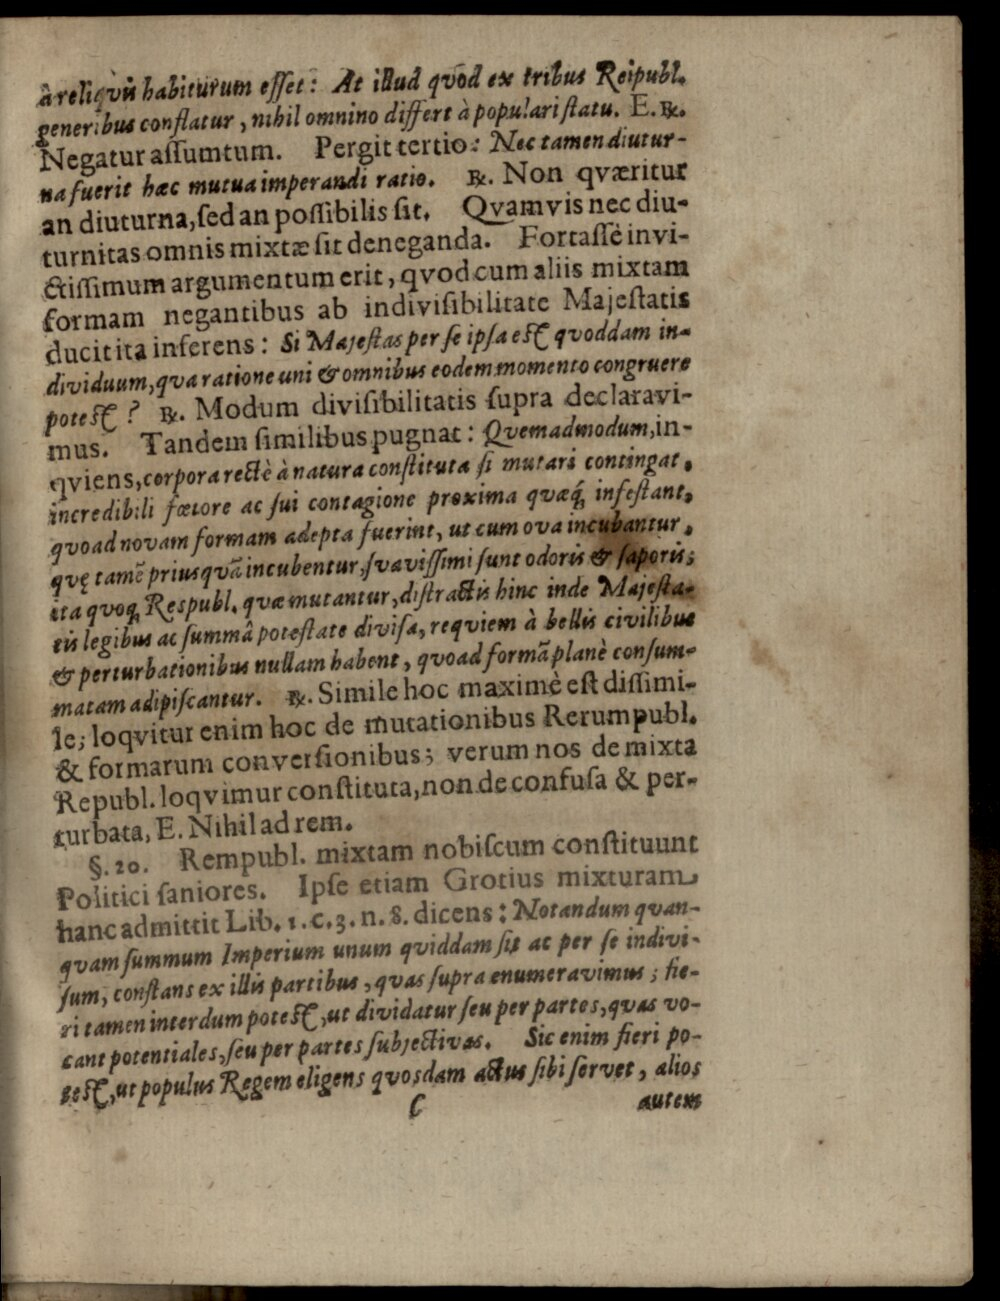 à reliqvũ habiturum eſſet: At illud qvod ex tribus Reipubl.
generibus conflatur, nihil omnino differt à populari ſtatu. E. ℞.
Negatur aſſumtum. Pergit tertio: Nec tamen diutur-
na fuerit hæc mutua imperandi ratio. ℞. Non qværitur
an diuturna, ſed an poſſibilis ſit. Qvamvis nec diu-
turnitas omnis mixtæ ſit deneganda. Fortaſſè invi-
ctiſſimum argumentum erit, qvod cum aliis mixtam
formam negantibus ab indiviſibilitate Majeſtatis
ducit ita inferens: Si Majeſtas per ſe ipſa eſt qvoddam in-
dividuum, qva ratione uni & omnibus eodem momento congruere
poteſt? ℞. Modum diviſibilitatis ſupra declaravi-
mus. Tandem ſimilibus pugnat: Qvemadmodum, in-
qviens, corpora rectè à natura conſtituta ſi mutari contingat,
incredibili fœtore ac ſui contagione proxima qvæq́; infeſtant,
qvoad novam formam adepta fuerint, ut cum ova incubantur,
qvę tamẽ priusqvã incubentur, ſvaviſſimi ſunt odoris & ſaporis;
ita qvoq; Respubl. qvæ mutantur, diſtractis hinc inde Majeſta-
tis legibus ac ſummâ poteſtate diviſa, reqviem à bellis civilibus
& perturbationibus nullam habent, qvoad formã planè conſum-
matam adipiſcantur. ℞. Simile hoc maximè eſt diſſimi-
le; loqvitur enim hoc de mutationibus Rerumpubl.
& formarum converſionibus; verum nos de mixta
Republ. loqvimur conſtituta, non de confuſa & per-
turbata, E. Nihil ad rem.
§. 20. Rempubl. mixtam nobiſcum conſtituunt
Politici ſaniores. Ipſe etiam Grotius mixturam
hanc admittit Lib. 1. c. 3. n. 8. dicens: Notandum qvan-
qvam ſummum Imperium unum qviddam ſit ac per ſe indivi-
ſum, conſtans ex illis partibus, qvas ſupra enumeravimus; fie-
ri tamen interdum poteſt, ut dividatur ſeu per partes, qvas vo-
cant potentiales, ſeu per partes ſubjectivas. Sic enim fieri po-
teſt, ut populus Regem eligens qvosdam actus ſibi ſervet, alios
C autem